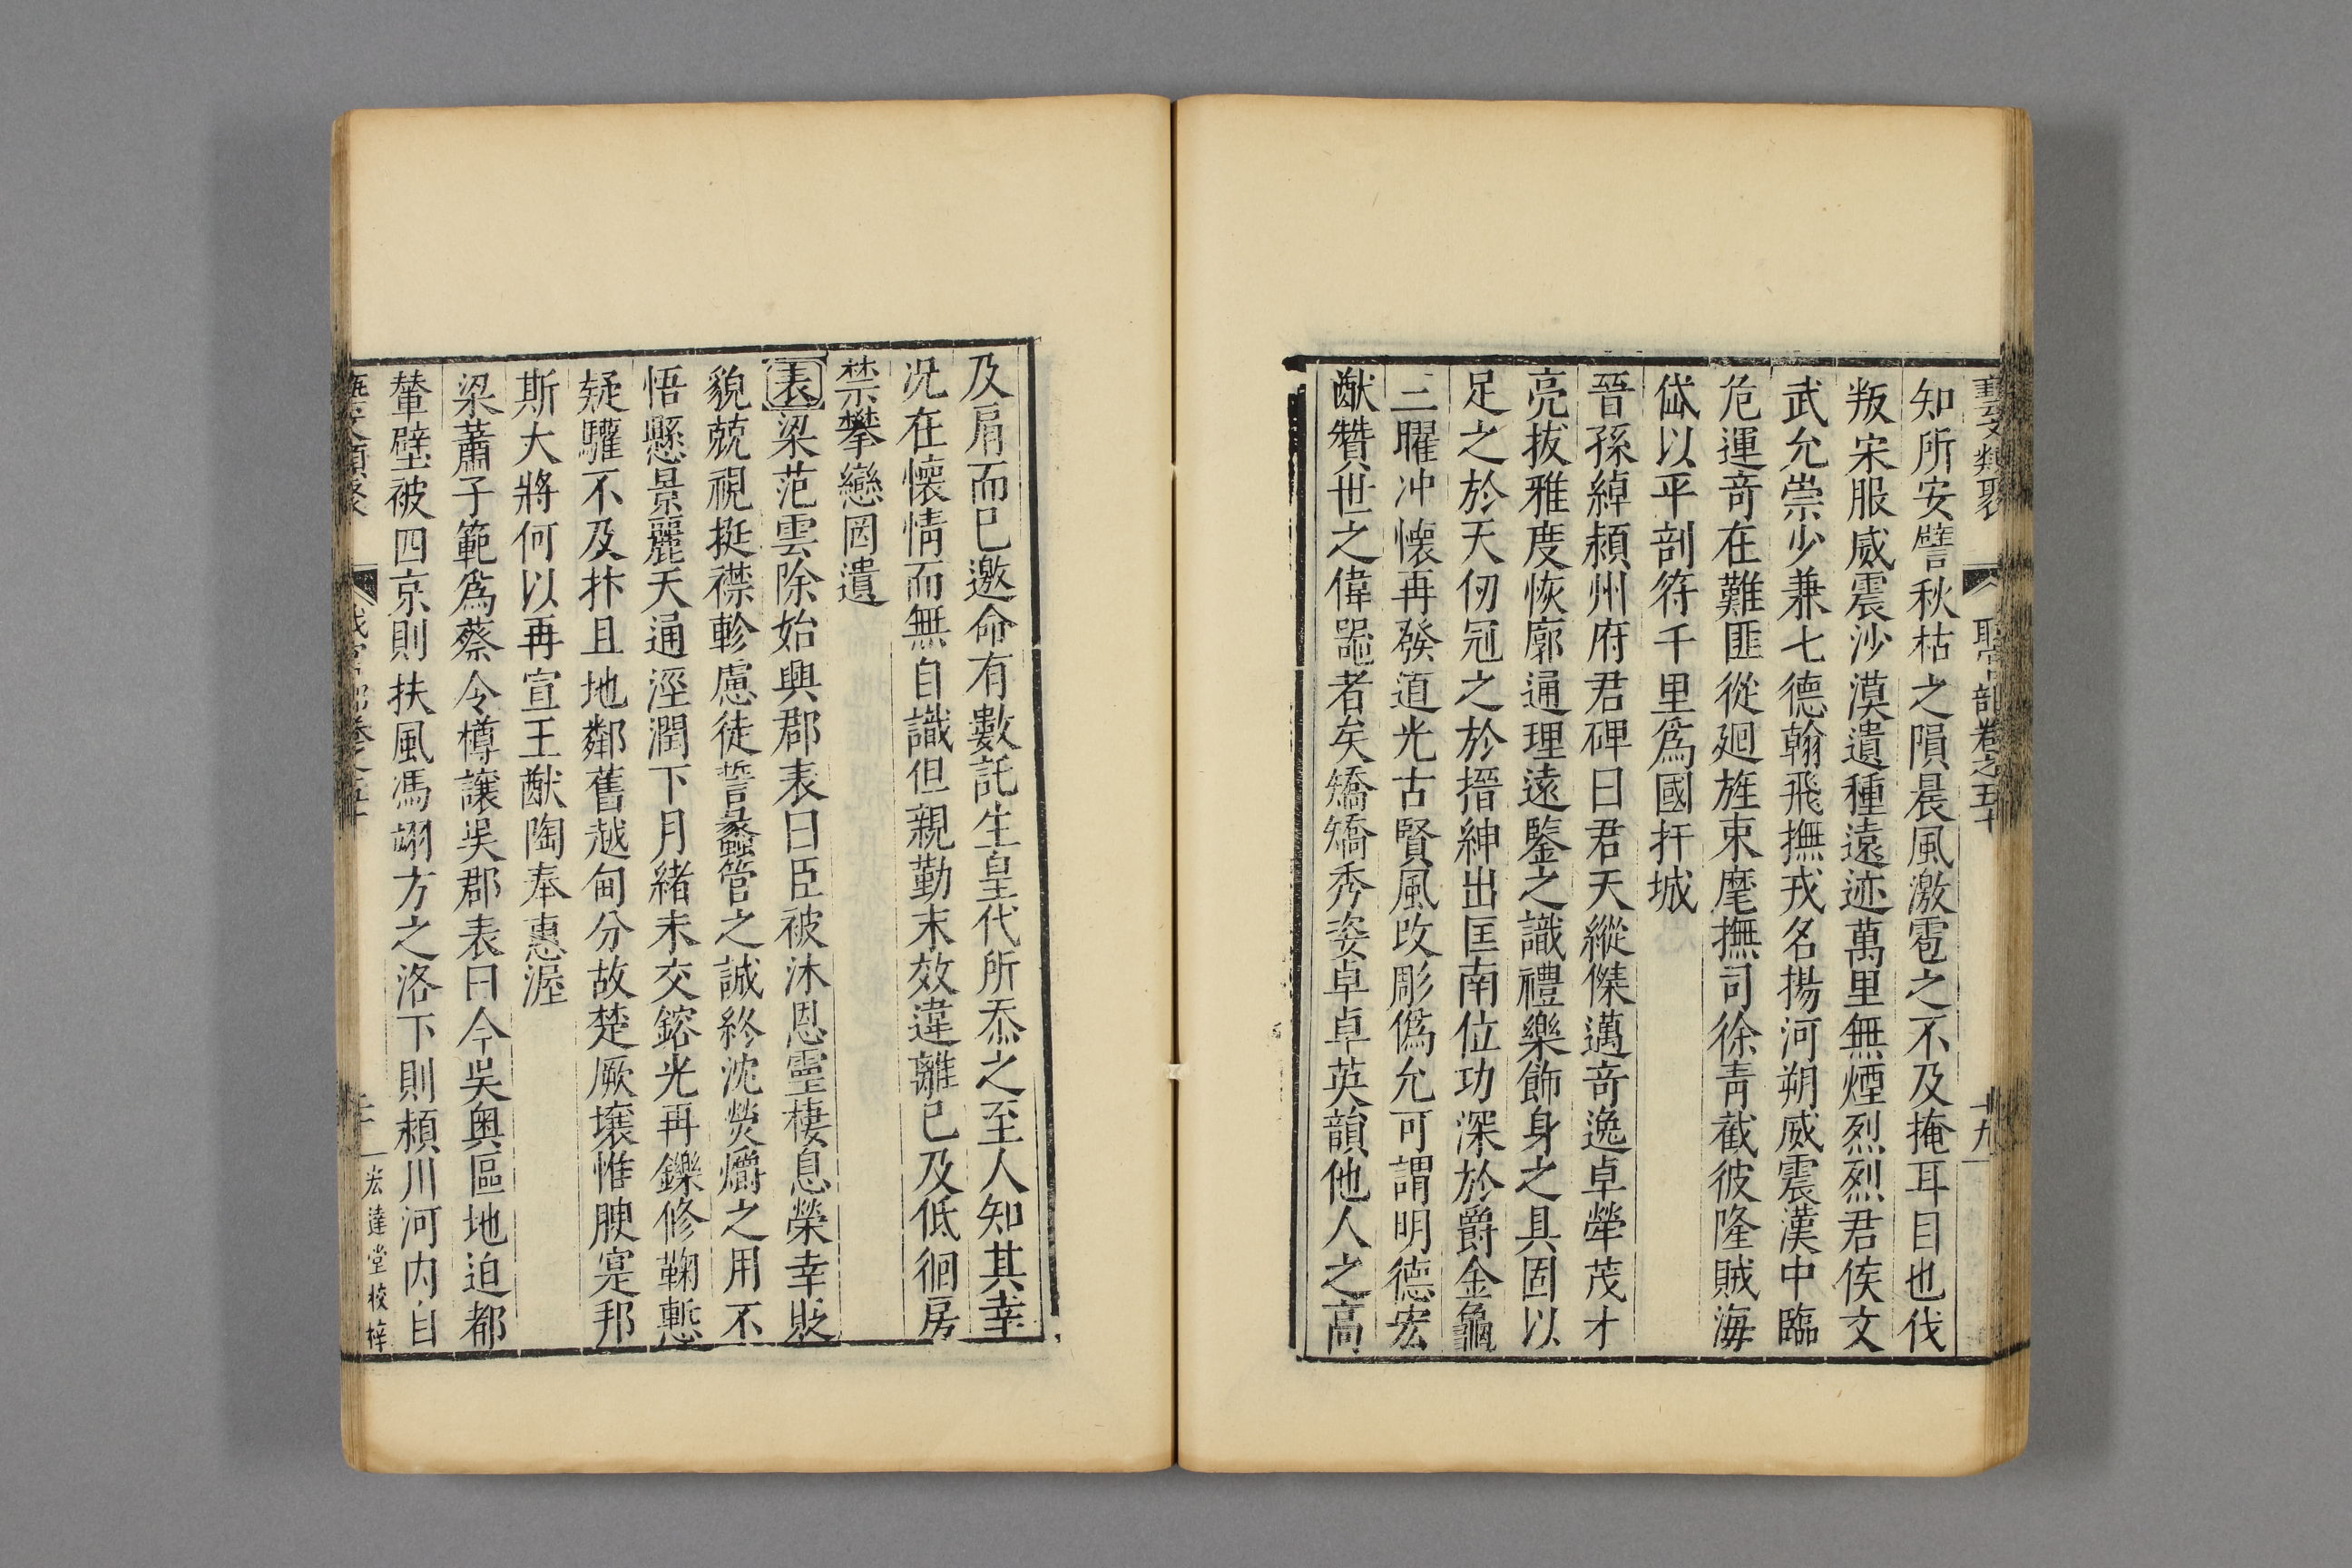 藝文類聚 職官部卷之五十 十九
知所安譬秋枯之隕晨風激雹之不及掩耳目也伐
叛宋服威震沙漠遺種遠迹萬里無煙烈烈君侯文
武允崇少兼七德翰飛撫戎名揚河朔威震漢中臨
危運奇在難匪從廻旌東麾撫司徐青截彼隆賊海
岱以平剖符千里爲國扞城
晉孫綽潁州府君碑曰君天縱傑邁奇逸卓犖茂才
亮拔雅度恢廓通理遠鑒之識禮樂飾身之具固以
足之於天仞冠之於搢紳出匡南位功深於爵金龜
三曜冲懷再發道光古賢風改彫僞允可謂明德宏
猷贊世之偉噐者矣矯矯秀姿卓卓英韻他人之高
及肩而巳邀命有數託生皇代所忝之至人知其幸
况在懷情而無自識但親勤末效違離巳及低徊房
禁攀戀罔遺
表梁范雲除始興郡表曰臣被沐恩靈棲息榮幸貶
貌兢視挺襟軫慮徒誓蠡管之誠終沈熒爝之用不
悟懸景麗天通涇潤下月緒未交鎔光再鑠修鞠慙
疑驩不及抃且地鄰舊越甸分故楚厥壤惟腴寔邦
斯大將何以再宣王猷陶奉惠渥
梁蕭子範爲蔡令樽讓吳郡表曰今吳奥區地迫都
輦壁被四京則扶風馮翊方之洛下則潁川河内自
藝文類聚 職官部卷之五十 二十 宏達堂校梓